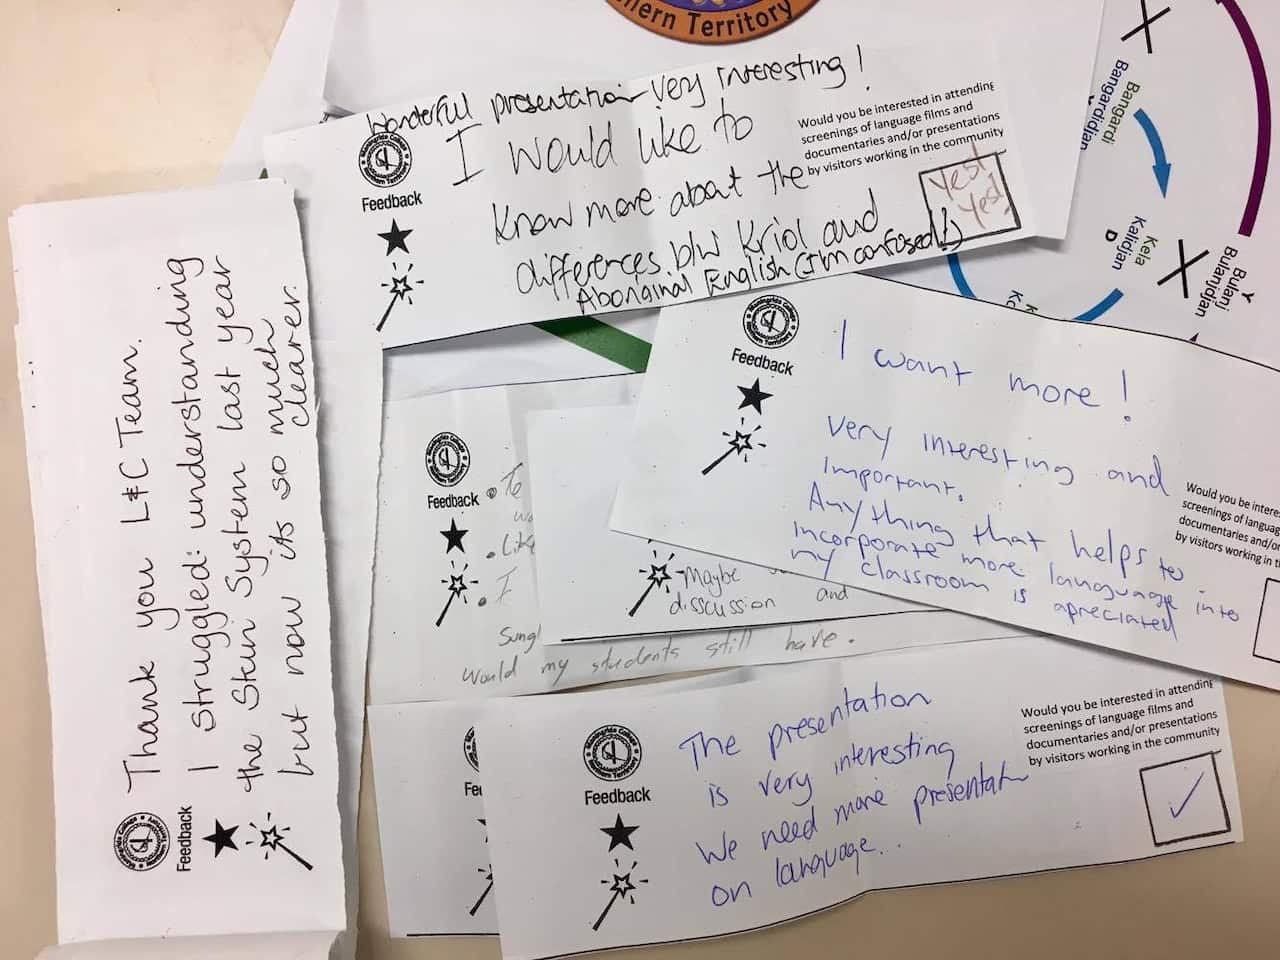 ern Territory
Wonderful presentation - very interesting!
I would like to
know more about the
differences b/w Kriol and
Aboriginal English (I'm confused!!)
Maningrida College
Northern Territory
Feedback
Would you be interested in attending
screenings of language films and
documentaries and/or presentations
by visitors working in the community
Yes!
Yes!
Bangardi
Bangardidjan
Kela
Kalidjan
D
Y
Bulanj
Bulanjdjan
Thank you L&C Team.
I struggled understanding
the Skin System last year
but now its so much
clearer.
Maningrida College
Northern Territory
Feedback
Maningrida College
Northern Territory
Feedback
I want more!
Very interesting and
important.
Anything that helps to
incorporate more language into
my classroom is apreciated
Would you be interes
screenings of language
documentaries and/or
by visitors working in t
Feedback
• To
• Like
• I
Maybe
disscussion and
would my students still have.
Maningrida College
Northern Territory
Feedback
The presentation
is very interesting
We need more presentat
on language...
Would you be interested in attending
screenings of language films and
documentaries and/or presentations
by visitors working in the community
Fe